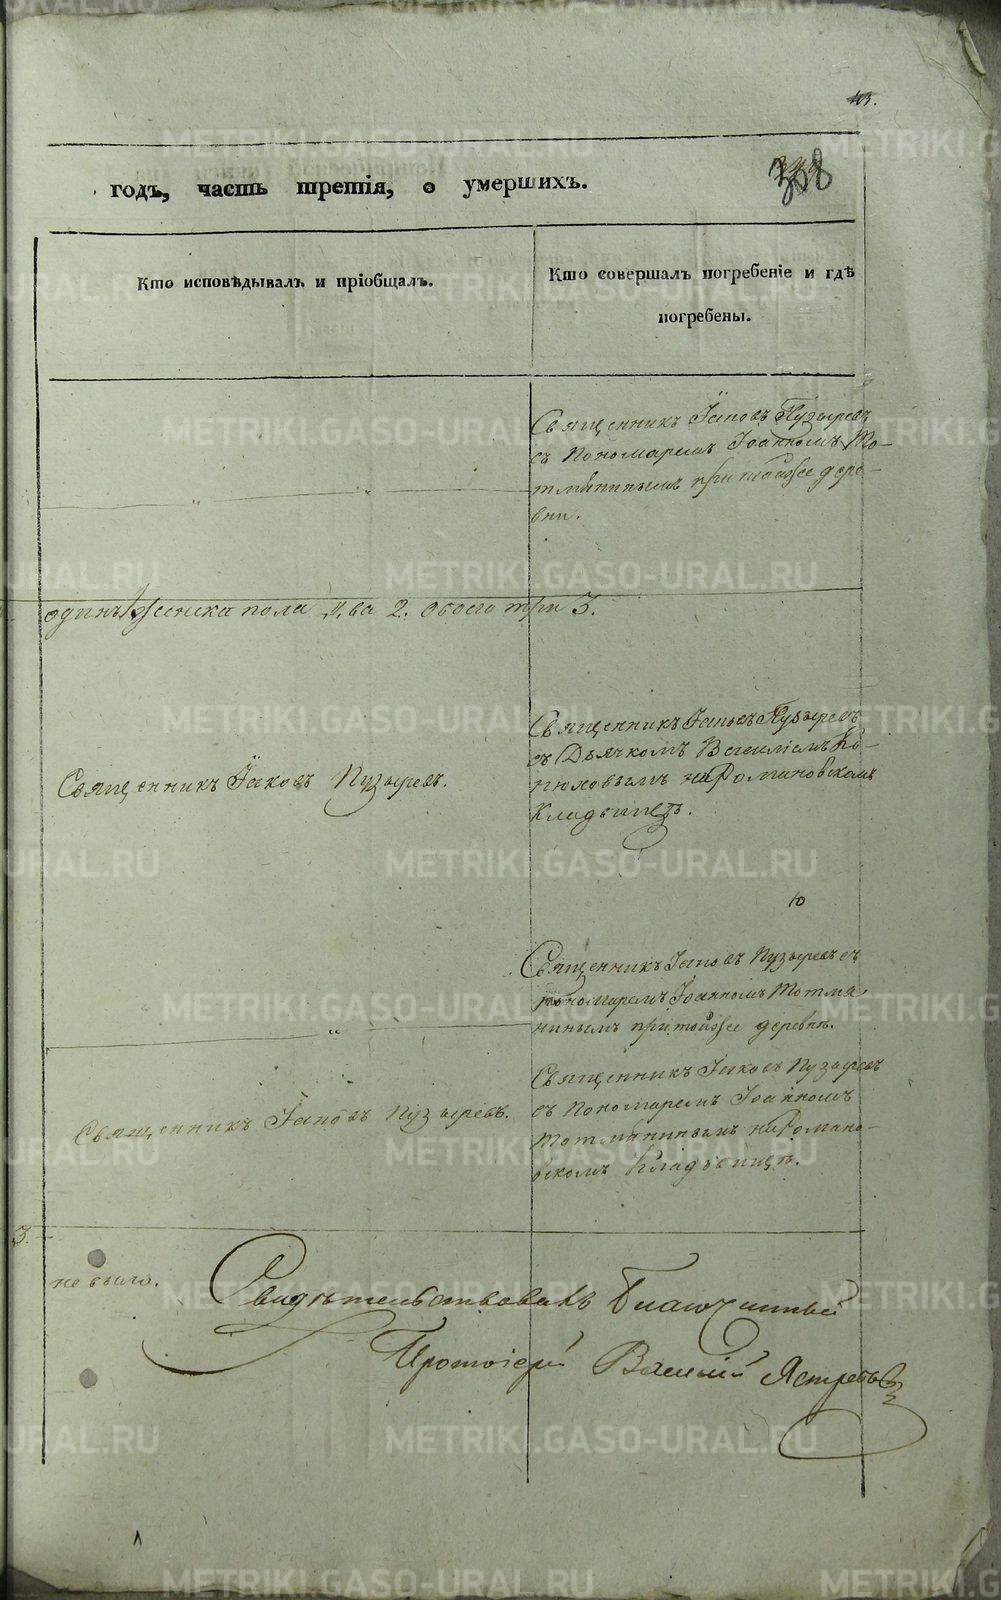 43.
308
годъ, часть третія, о умершихъ.
Кто исповѣдывалъ и пріобщалъ.
Кто совершалъ погребеніе и гдѣ
погребены.
Священникъ Іаковъ Пузыревъ
съ Пономаремъ Іоанномъ То-
тмянинымъ при тойже дере-
вни.
одинъ 1, женска пола два 2. обоего три 3.
Священникъ Іаковъ Пузыревъ.
Священникъ Іаковъ Пузыревъ
съ Дьячкомъ Василіемъ Ко-
нюховымъ на Романовскомъ
Кладбищѣ.
Ю
Священникъ Іаковъ Пузыревъ съ
пономаремъ Іоанномъ Тотмя
нинымъ при тойже деревнѣ.
Священникъ Іаковъ Пузыревъ.
Священникъ Іаковъ Пузыревъ
съ Пономаремъ Іоанномъ
Тотмянинымъ на Романо-
вскомъ Кладбищѣ.
3.
не было.
Свидѣтельствовалъ Благочинный
Протоіерей Василій Ястребовъ
METRIKI.GASO-URAL.RU